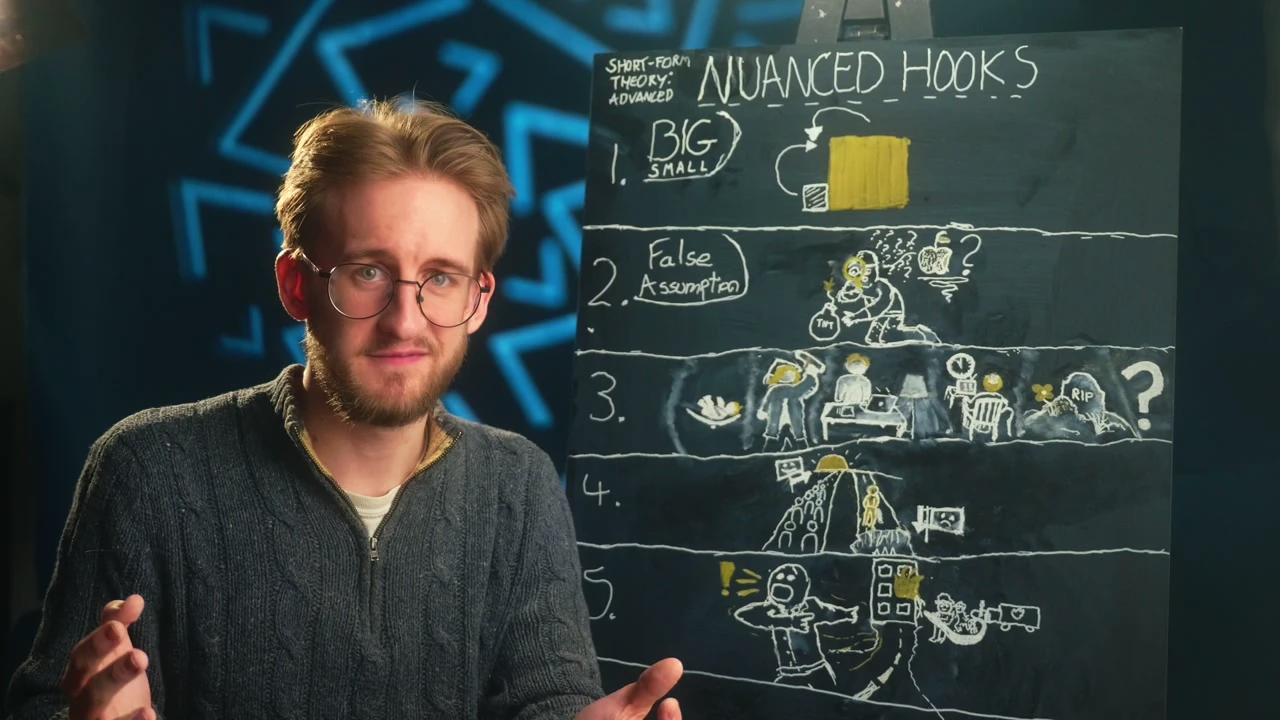 SHORT-FORM
THEORY:
ADVANCED
NUANCED HOOKS
1.
BIG
SMALL
2.
False
Assumption
?
TNT
3.
RIP
?
4.
5.
!